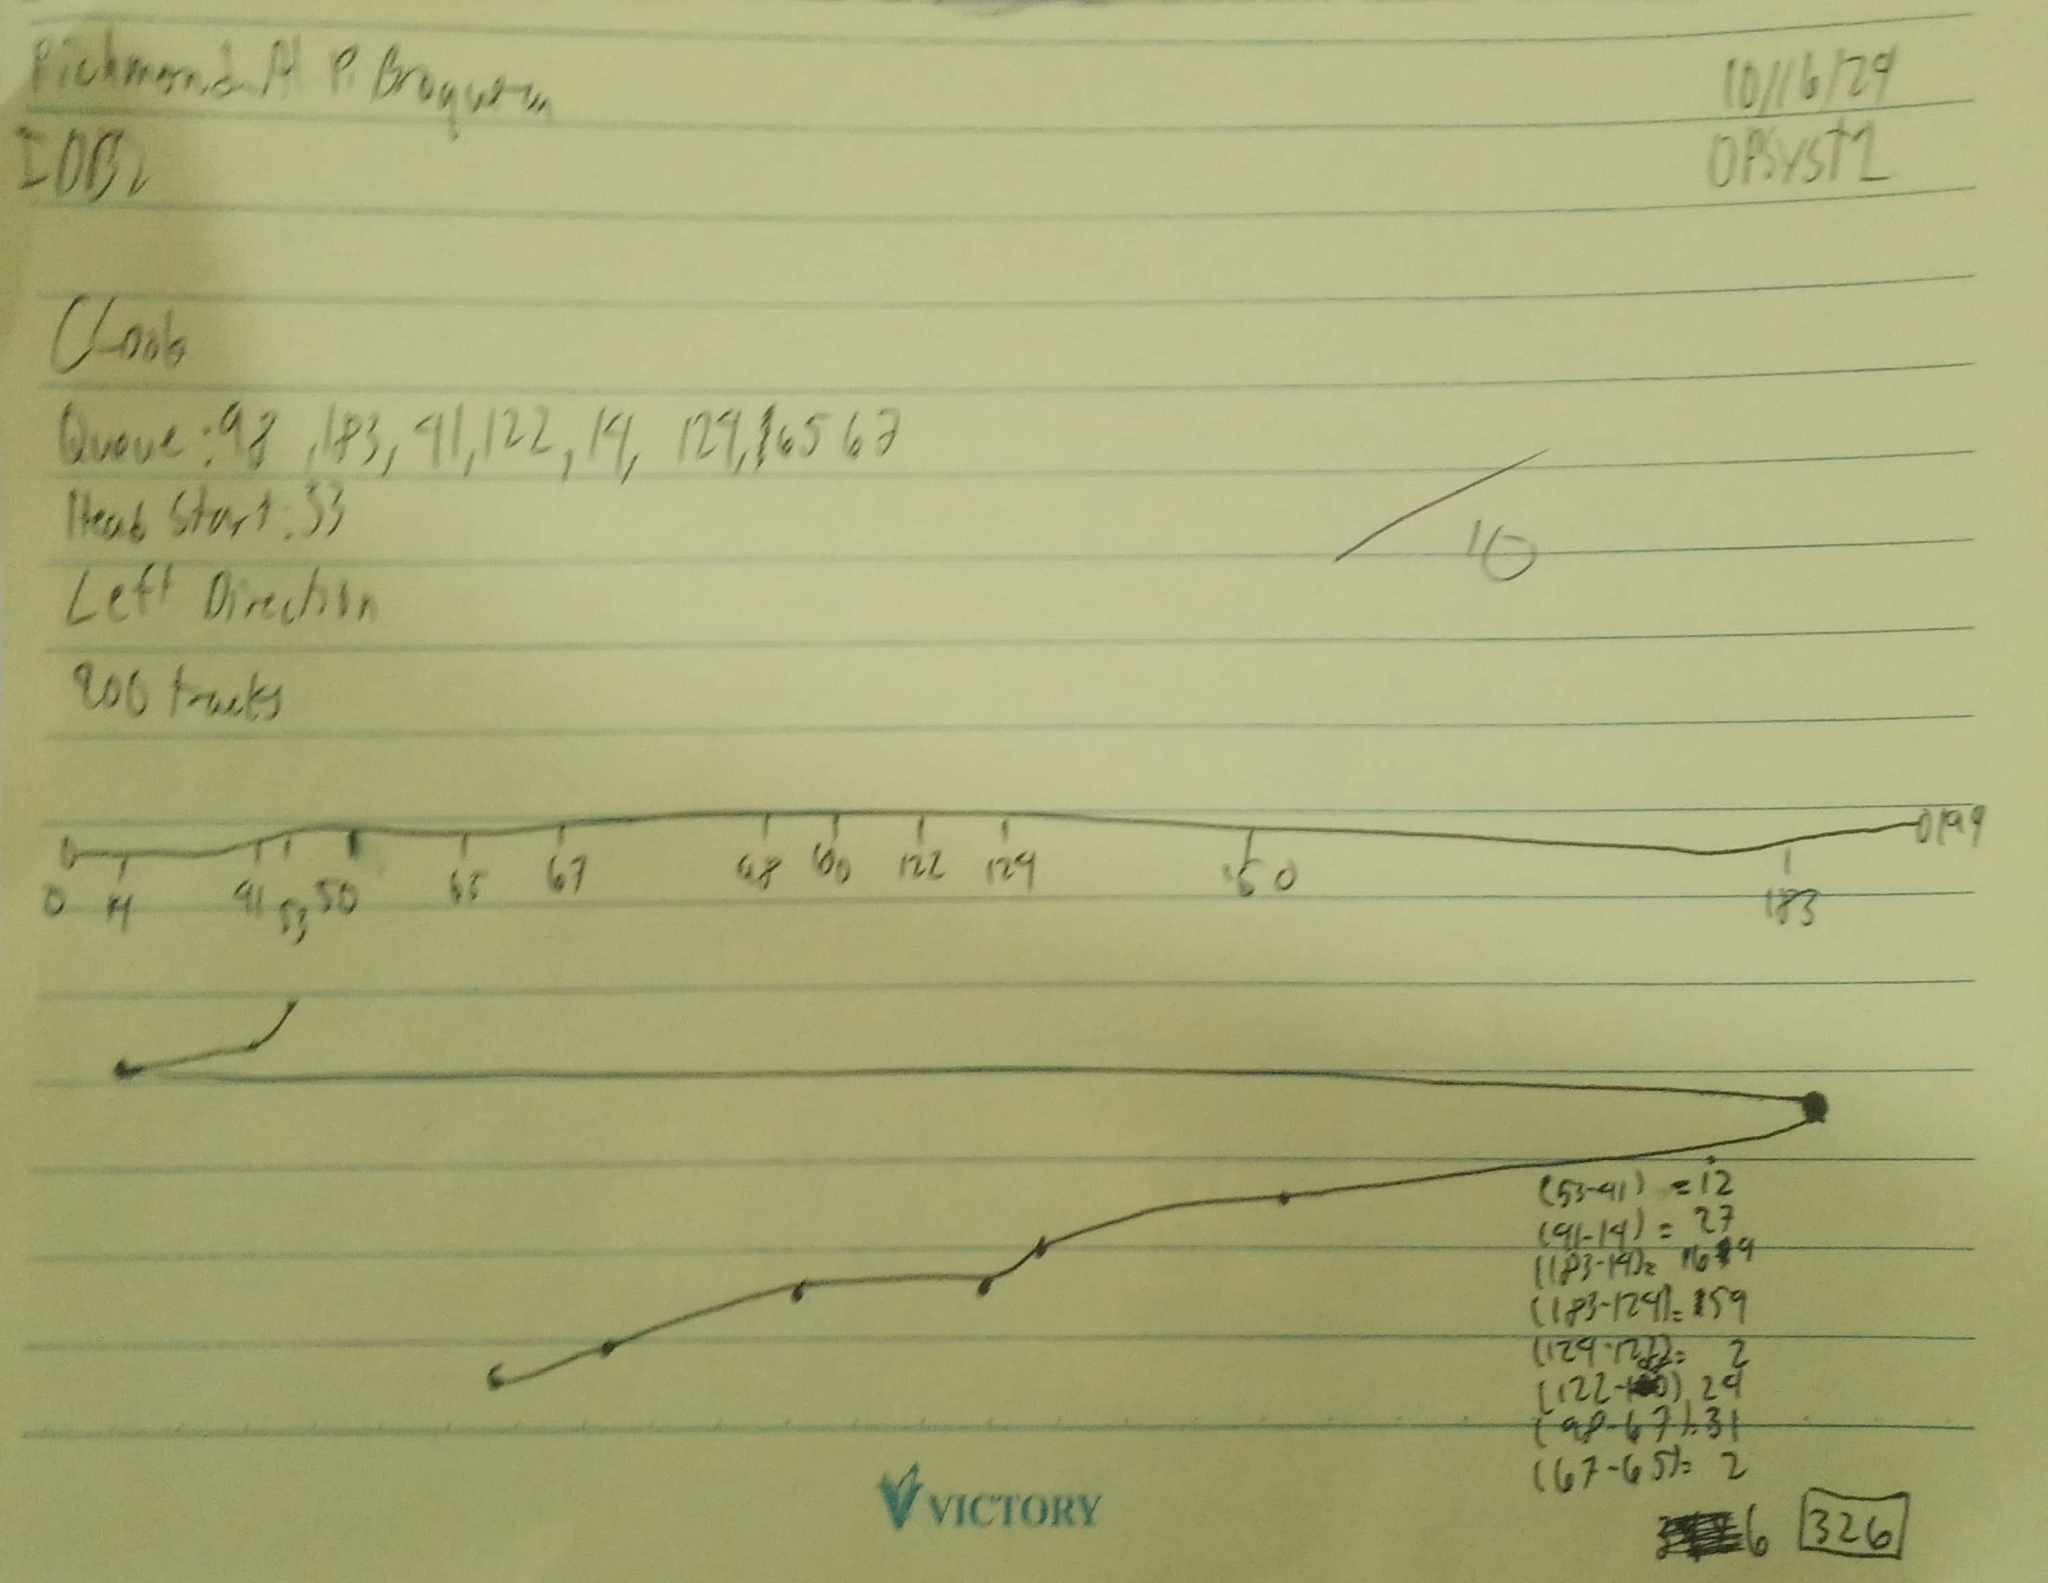 Richmond Al P. Braquem
10/16/24
IDB2
OPSYST2
CLook
Queue: 98, 183, 41, 122, 14, 124, 65 67
Head Start: 53
Left Direction
200 tracks
10
0 14 41 53 50 65 67 98 100 122 124 150 183 199
(53-41) = 12
(41-14) = 27
(183-14)= 169
(183-124)= 59
(124-122)= 2
(122-98) 24
(98-67)= 31
(67-65)= 2
6 326
VICTORY